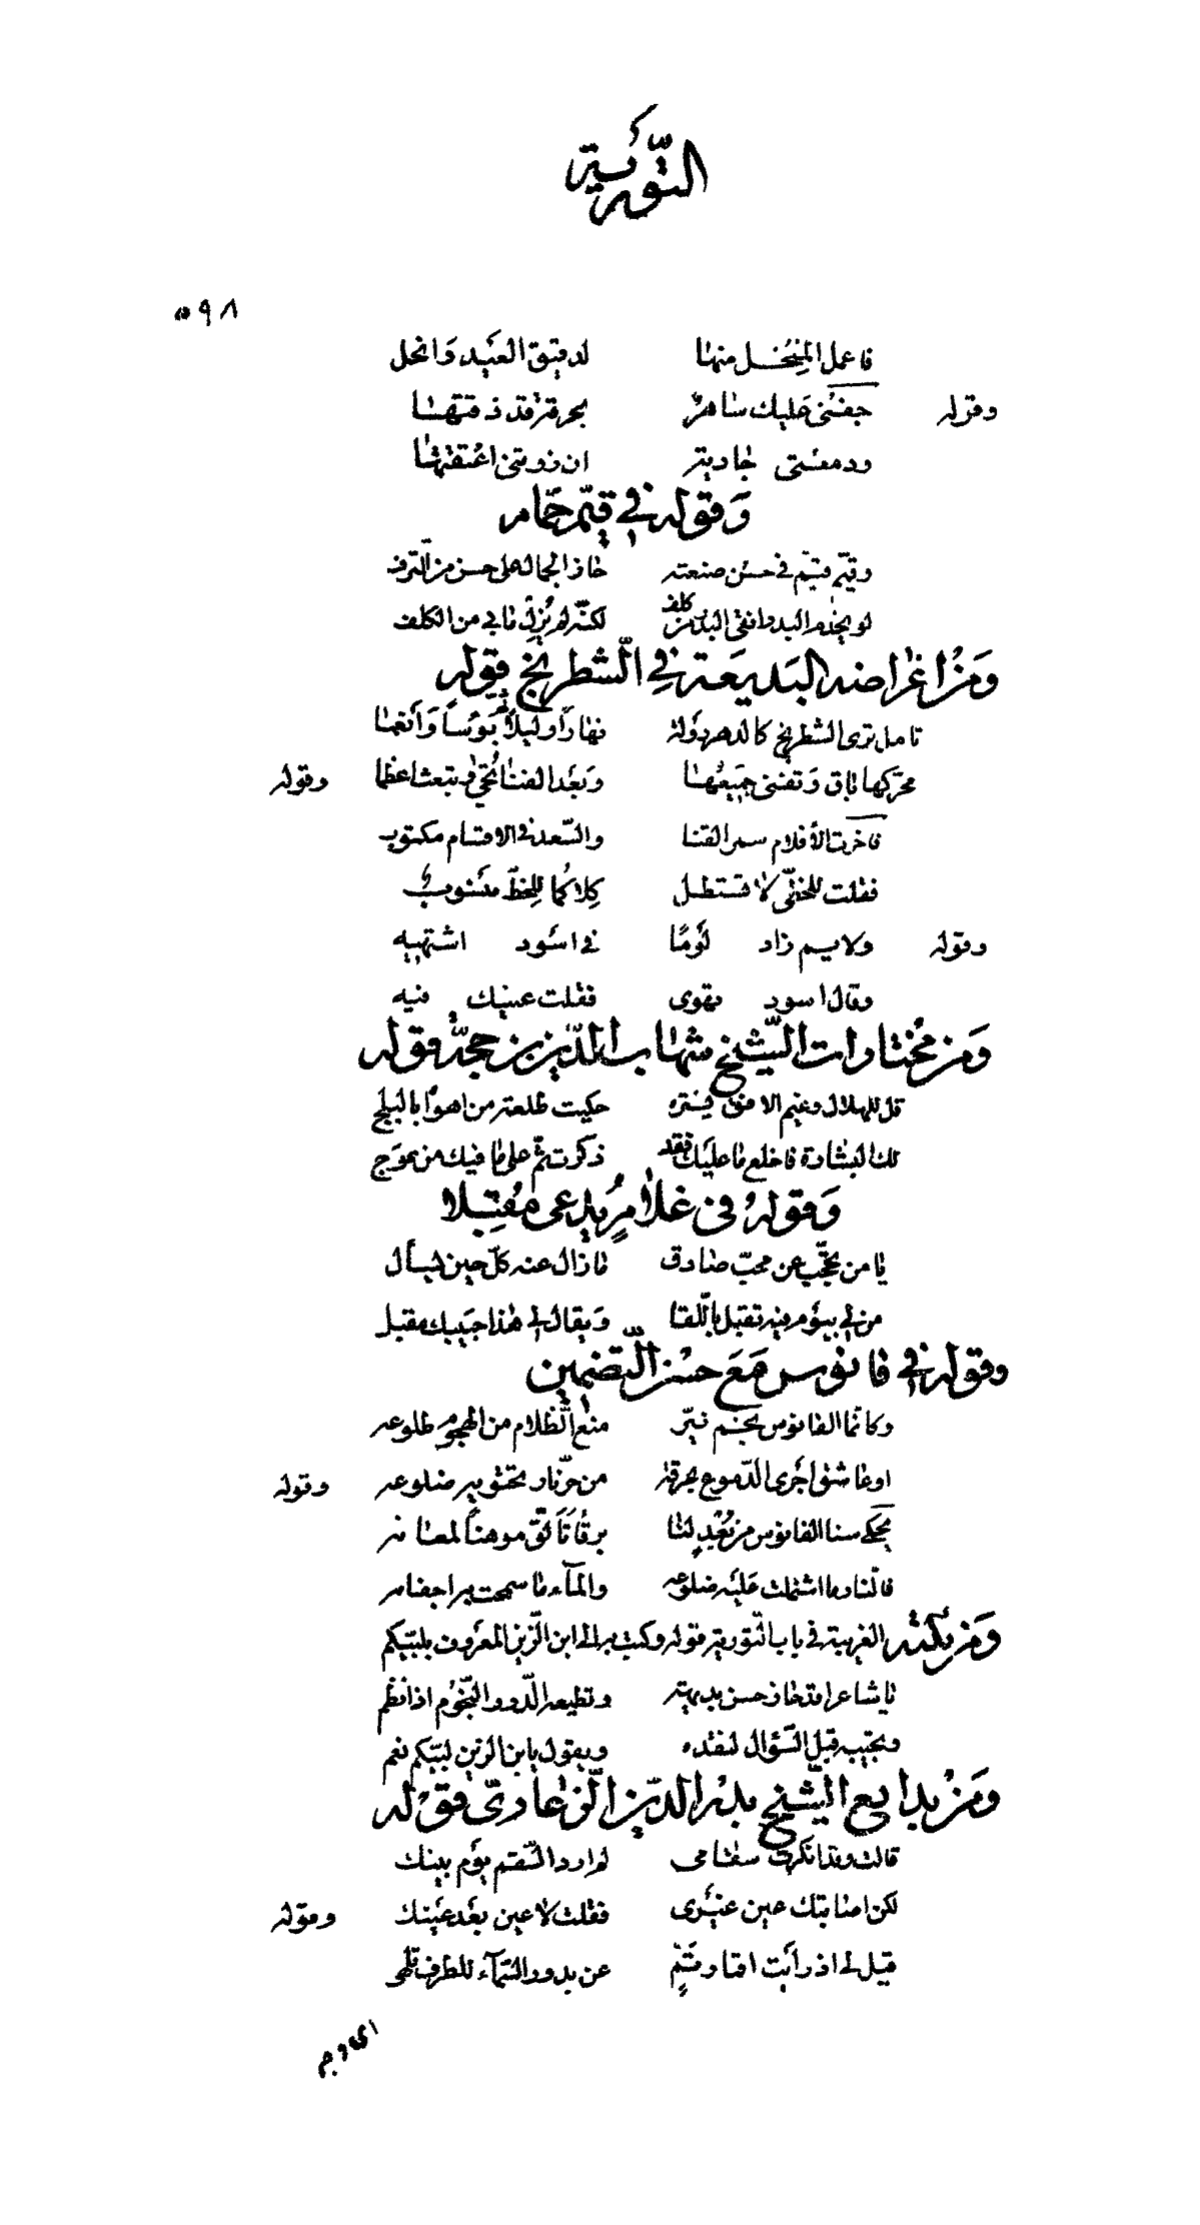 التورية
٥٩٨
فاعمل المنخل منها لدقيق العيد وانخل
وقوله جفني عليك ساهر بحرقة قد ذقتها
ودمعتي جارية ان زرتني اعتقتها
وقوله في قيم حمام
وقيم قيم في حسن صنعته حاز الجمال على حسن من الترف
لو يخدم البدر انقى البدر من كلف لكنه لم يزل ما بي من الكلف
ومن اغراضه البديعة في الشطرنج قوله
تامل ترى الشطرنج كالدهر دولة نهارا وليلا ثم بؤسا وانعما
محركها باق وتفنى جميعها وبعد الفنا تحيى وتبعث اعظما وقوله
فاخرت الأقلام سمر القنا والسعد في الاقسام مكتوب
فقلت للخطي لا تستطل كلاكما للخط منسوب
وقوله ولايم زاد لوما في اسود اشتهيه
وقال اسود تهوى فقلت عينيك فيه
ومن مختارات الشيخ شهاب الدين بن حجر قوله
قل للهلال وغيم الافق يستره حكيت طلعة من اهواه بالبلج
لك البشارة فاخلع ما عليك فقد ذكرت ثم على ما فيك من عوج
وقوله في غلام يدعى مقبلا
يا من يحجب عن محب صادق ما زال عنه كل حين يسأل
من لي بيوم فيه تقبل باللقا ويقال لي هذا حبيبك مقبل
وقوله في فانوس مع حسن التضمين
وكانما الفانوس نجم نير منع الظلام من الهجوم طلوعه
او عاشق اجرى الدموع بحرقة من حر نار تحتويه ضلوعه وقوله
يحكي سنا الفانوس من بعد لنا برقا تألق موهنا لمعانه
فالنار ما اشتملت عليه ضلوعه والمآء ما سمحت به اجفانه
ومن نكته الغريبة في باب التورية قوله وكتب به الى ابن الزين المعروف بلبيكم
يا شاعرا قد حاز حسن بديهة وتطيعه الدرر النجوم اذا نظم
ويجيب قبل السؤال لنقده ويقول يا بن الزين لبيكم نعم
ومن بدايع الشيخ بدر الدين الزغاري قوله
قالت وقد انكرت سقامي لم ار ذا السقم يوم بينك
لكن اصابتك عين غيري فقلت لا عين بعد عينك وقوله
قيل لي اذ رأيت اقمار تم عن بدور السمآء للطرف تلهي
اي وجه